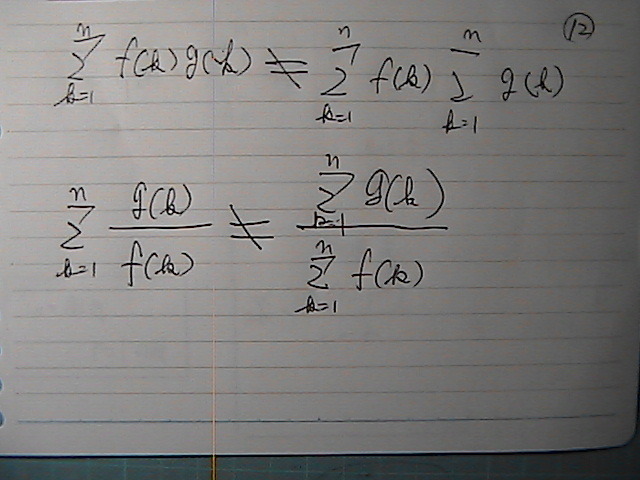 ⑫
\sum_{k=1}^{n} f(k) g(k) \neq \sum_{k=1}^{n} f(k) \sum_{k=1}^{n} g(k)
\sum_{k=1}^{n} \frac{g(k)}{f(k)} \neq \frac{\sum_{k=1}^{n} g(k)}{\sum_{k=1}^{n} f(k)}